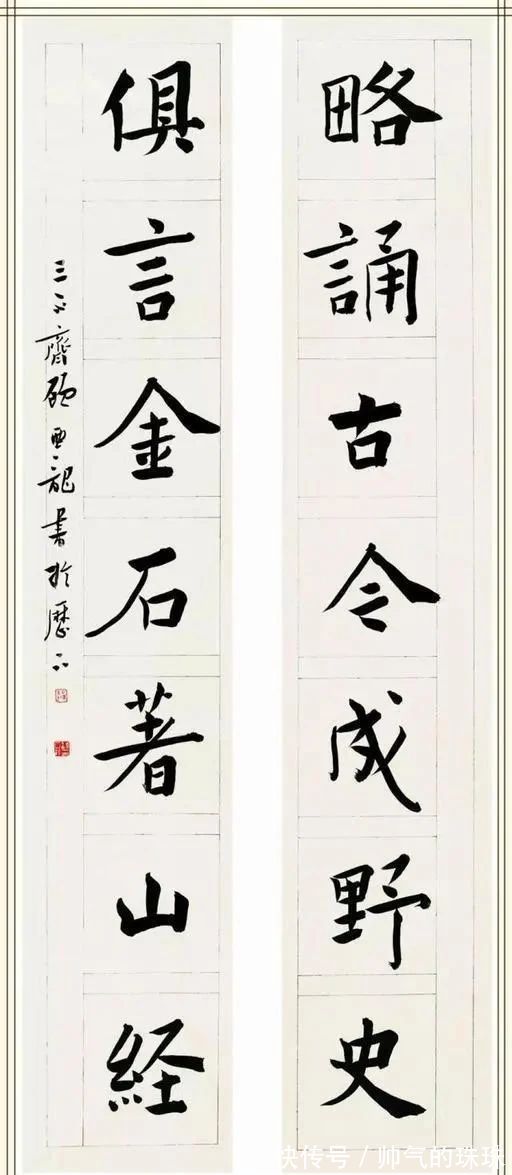 略誦古今成野史
俱言金石著山経
三不齋 亜龍書於歷下
快传号／帅气的珠珠